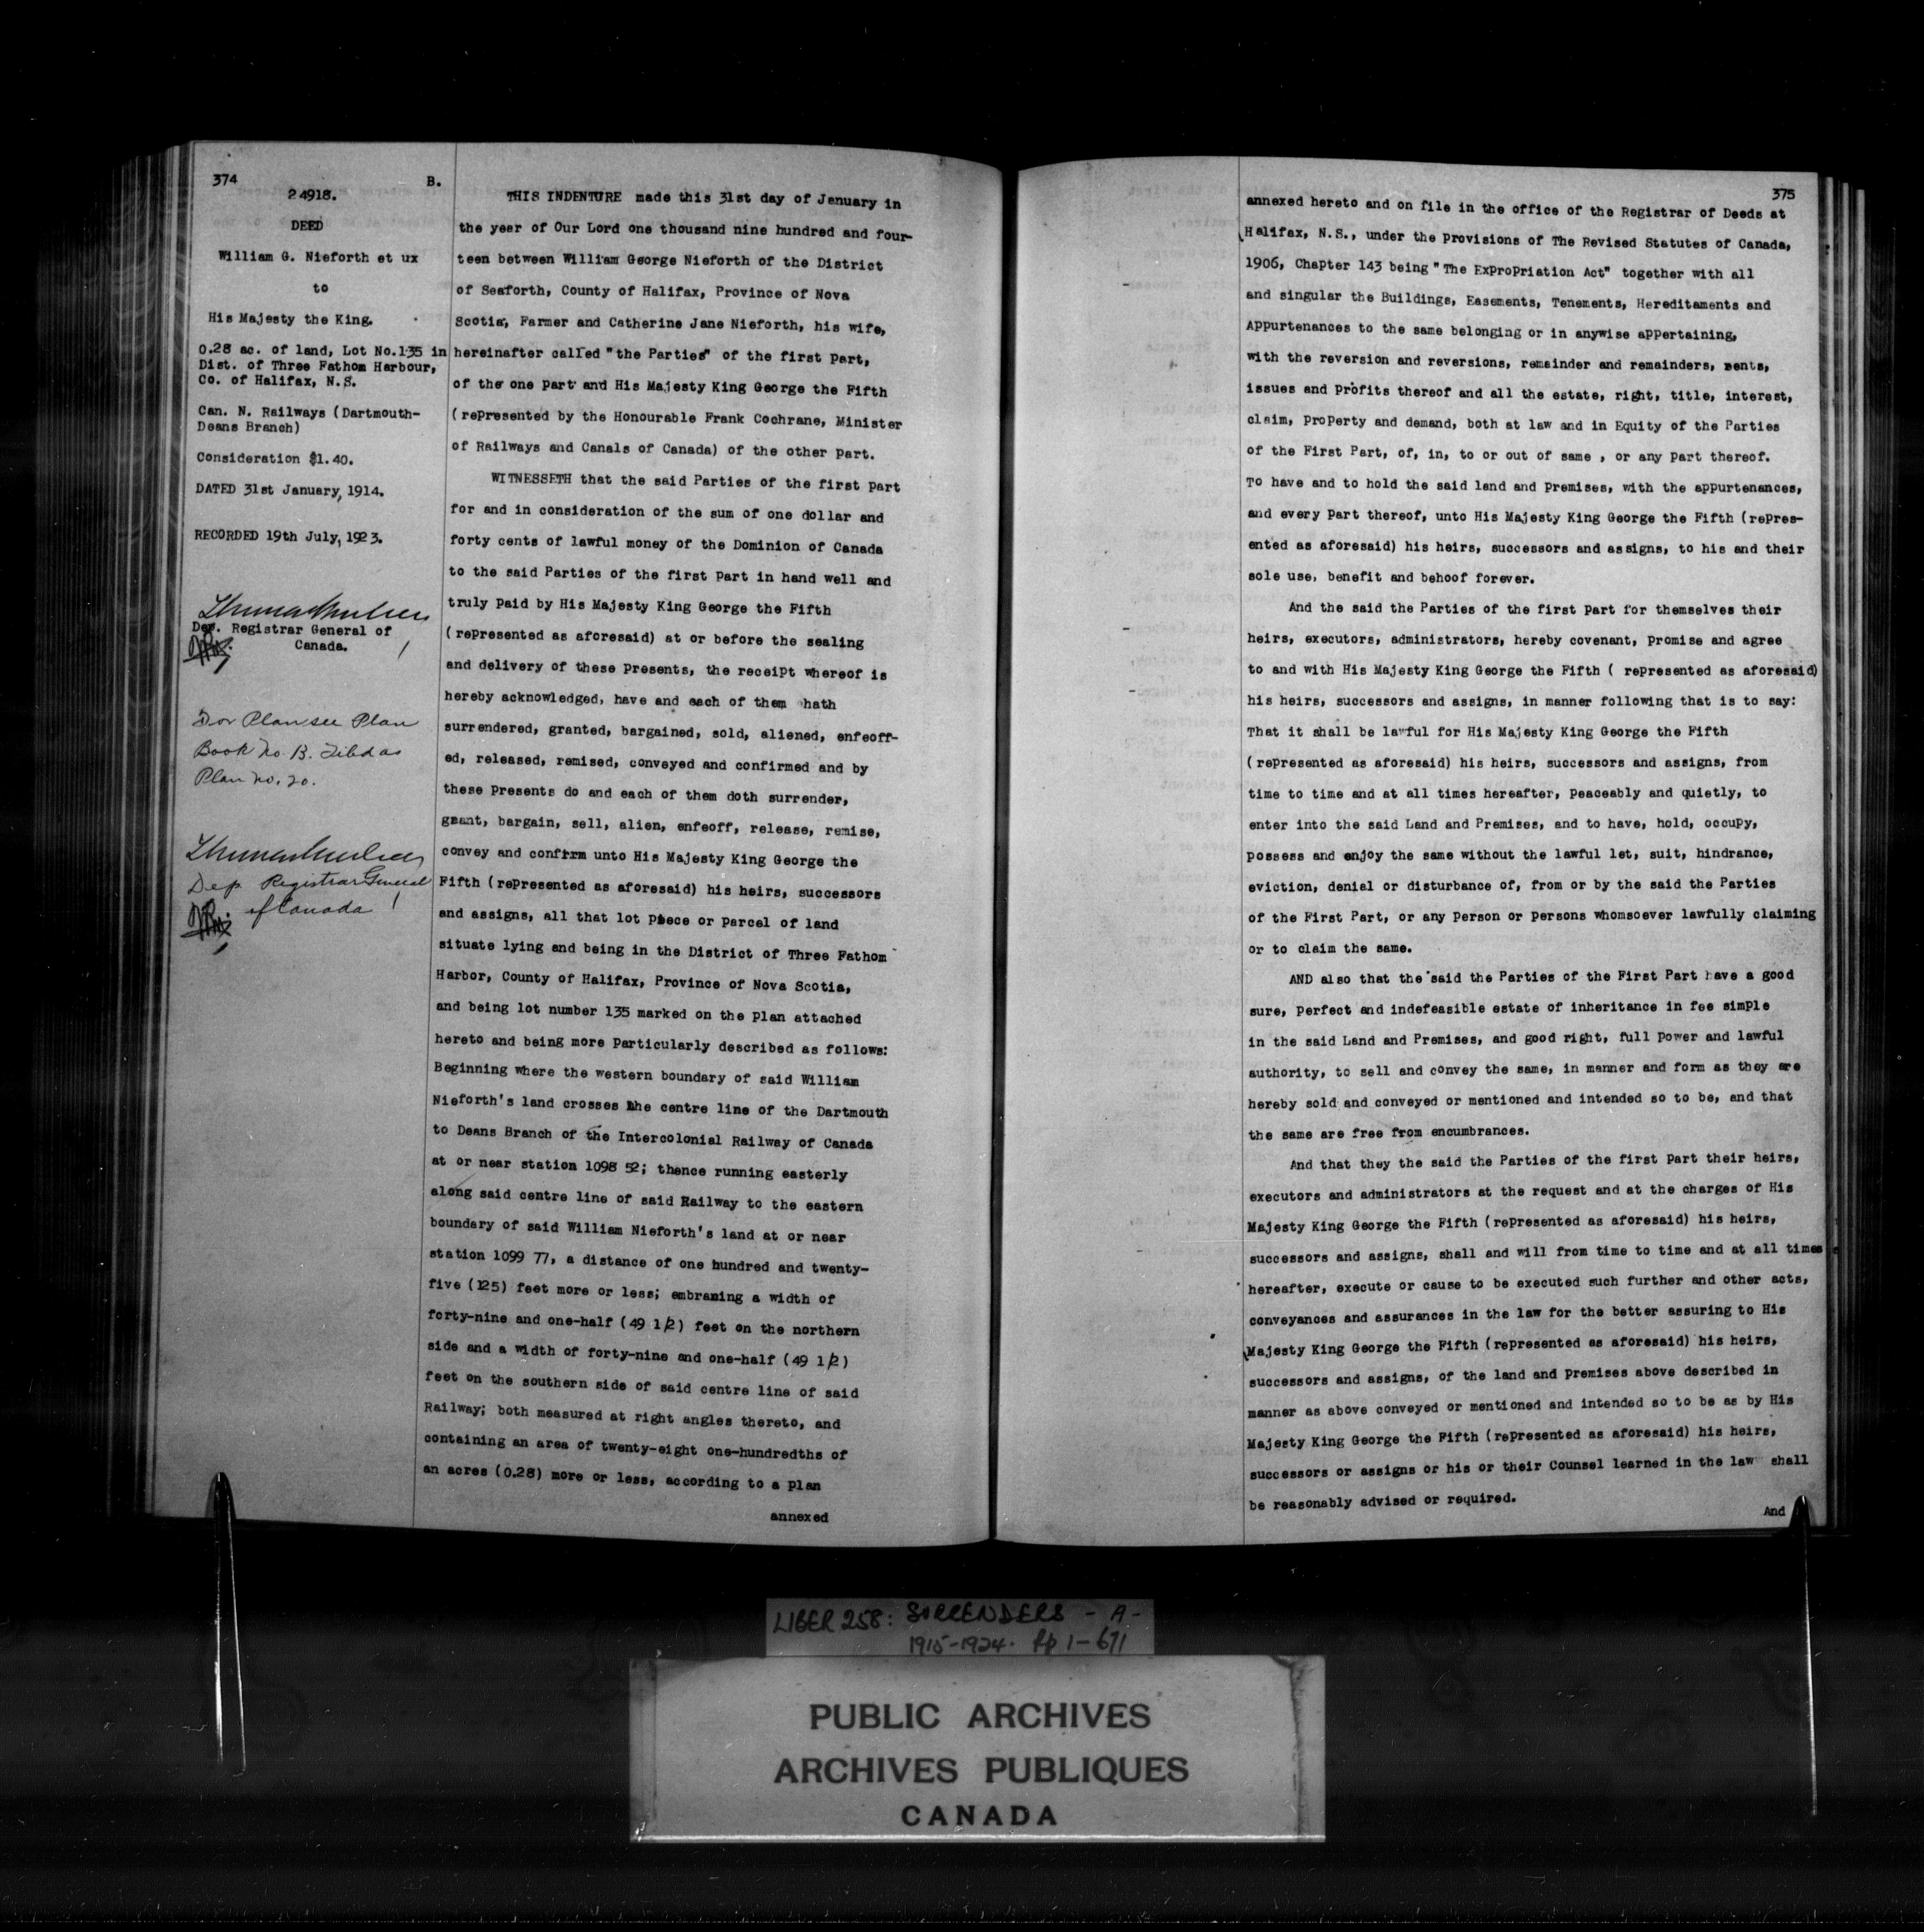 374
B.
24918.
DEED
William G. Nieforth et ux
to
His Majesty the King.
0.28 ac. of land, Lot No.135 in
Dist. of Three Fathom Harbour,
Co. of Halifax, N.S.
Can. N. Railways (Dartmouth-
Deans Branch)
Consideration $1.40.
DATED 31st January, 1914.
RECORDED 19th July, 1923.
Dep. Registrar General of
Canada.
For Plan see Plan
Book No. B. Filed as
Plan No. 20.
Dep Registrar General
of Canada
THIS INDENTURE made this 31st day of January in
the year of Our Lord one thousand nine hundred and four-
teen between William George Nieforth of the District
of Seaforth, County of Halifax, Province of Nova
Scotia, Farmer and Catherine Jane Nieforth, his wife,
hereinafter called "the Parties" of the first part,
of the one part and His Majesty King George the Fifth
(represented by the Honourable Frank Cochrane, Minister
of Railways and Canals of Canada) of the other part.
WITNESSETH that the said Parties of the first part
for and in consideration of the sum of one dollar and
forty cents of lawful money of the Dominion of Canada
to the said Parties of the first part in hand well and
truly paid by His Majesty King George the Fifth
(represented as aforesaid) at or before the sealing
and delivery of these presents, the receipt whereof is
hereby acknowledged, have and each of them hath
surrendered, granted, bargained, sold, aliened, enfeoff-
ed, released, remised, conveyed and confirmed and by
these presents do and each of them doth surrender,
grant, bargain, sell, alien, enfeoff, release, remise,
convey and confirm unto His Majesty King George the
Fifth (represented as aforesaid) his heirs, successors
and assigns, all that lot piece or parcel of land
situate lying and being in the District of Three Fathom
Harbor, County of Halifax, Province of Nova Scotia,
and being lot number 135 marked on the plan attached
hereto and being more particularly described as follows:
Beginning where the western boundary of said William
Nieforth's land crosses the centre line of the Dartmouth
to Deans Branch of the Intercolonial Railway of Canada
at or near station 1098 52; thence running easterly
along said centre line of said Railway to the eastern
boundary of said William Nieforth's land at or near
station 1099 77, a distance of one hundred and twenty-
five (125) feet more or less; embracing a width of
forty-nine and one-half (49 1/2) feet on the northern
side and a width of forty-nine and one-half (49 1/2)
feet on the southern side of said centre line of said
Railway; both measured at right angles thereto, and
containing an area of twenty-eight one-hundredths of
an acres (0.28) more or less, according to a plan
annexed
375
annexed hereto and on file in the office of the Registrar of Deeds at
Halifax, N.S., under the provisions of The Revised Statutes of Canada,
1906, Chapter 143 being "The Expropriation Act" together with all
and singular the Buildings, Easements, Tenements, Hereditaments and
Appurtenances to the same belonging or in anywise appertaining,
with the reversion and reversions, remainder and remainders, rents,
issues and profits thereof and all the estate, right, title, interest,
claim, property and demand, both at law and in Equity of the Parties
of the First Part, of, in, to or out of same , or any part thereof.
To have and to hold the said land and premises, with the appurtenances,
and every part thereof, unto His Majesty King George the Fifth (repres-
ented as aforesaid) his heirs, successors and assigns, to his and their
sole use, benefit and behoof forever.
And the said the Parties of the first part for themselves their
heirs, executors, administrators, hereby covenant, promise and agree
to and with His Majesty King George the Fifth ( represented as aforesaid)
his heirs, successors and assigns, in manner following that is to say:
That it shall be lawful for His Majesty King George the Fifth
(represented as aforesaid) his heirs, successors and assigns, from
time to time and at all times hereafter, peaceably and quietly, to
enter into the said Land and Premises, and to have, hold, occupy,
possess and enjoy the same without the lawful let, suit, hindrance,
eviction, denial or disturbance of, from or by the said the Parties
of the First Part, or any person or persons whomsoever lawfully claiming
or to claim the same.
AND also that the said the Parties of the First Part have a good
sure, perfect and indefeasible estate of inheritance in fee simple
in the said Land and Premises, and good right, full power and lawful
authority, to sell and convey the same, in manner and form as they are
hereby sold and conveyed or mentioned and intended so to be, and that
the same are free from encumbrances.
And that they the said the Parties of the first part their heirs,
executors and administrators at the request and at the charges of His
Majesty King George the Fifth (represented as aforesaid) his heirs,
successors and assigns, shall and will from time to time and at all times
hereafter, execute or cause to be executed such further and other acts,
conveyances and assurances in the law for the better assuring to His
Majesty King George the Fifth (represented as aforesaid) his heirs,
successors and assigns, of the land and premises above described in
manner as above conveyed or mentioned and intended so to be as by His
Majesty King George the Fifth (represented as aforesaid) his heirs,
successors or assigns or his or their Counsel learned in the law shall
be reasonably advised or required.
And
LIBER 258: SURRENDERS - A -
1915-1924. pp 1-671
PUBLIC ARCHIVES
ARCHIVES PUBLIQUES
CANADA